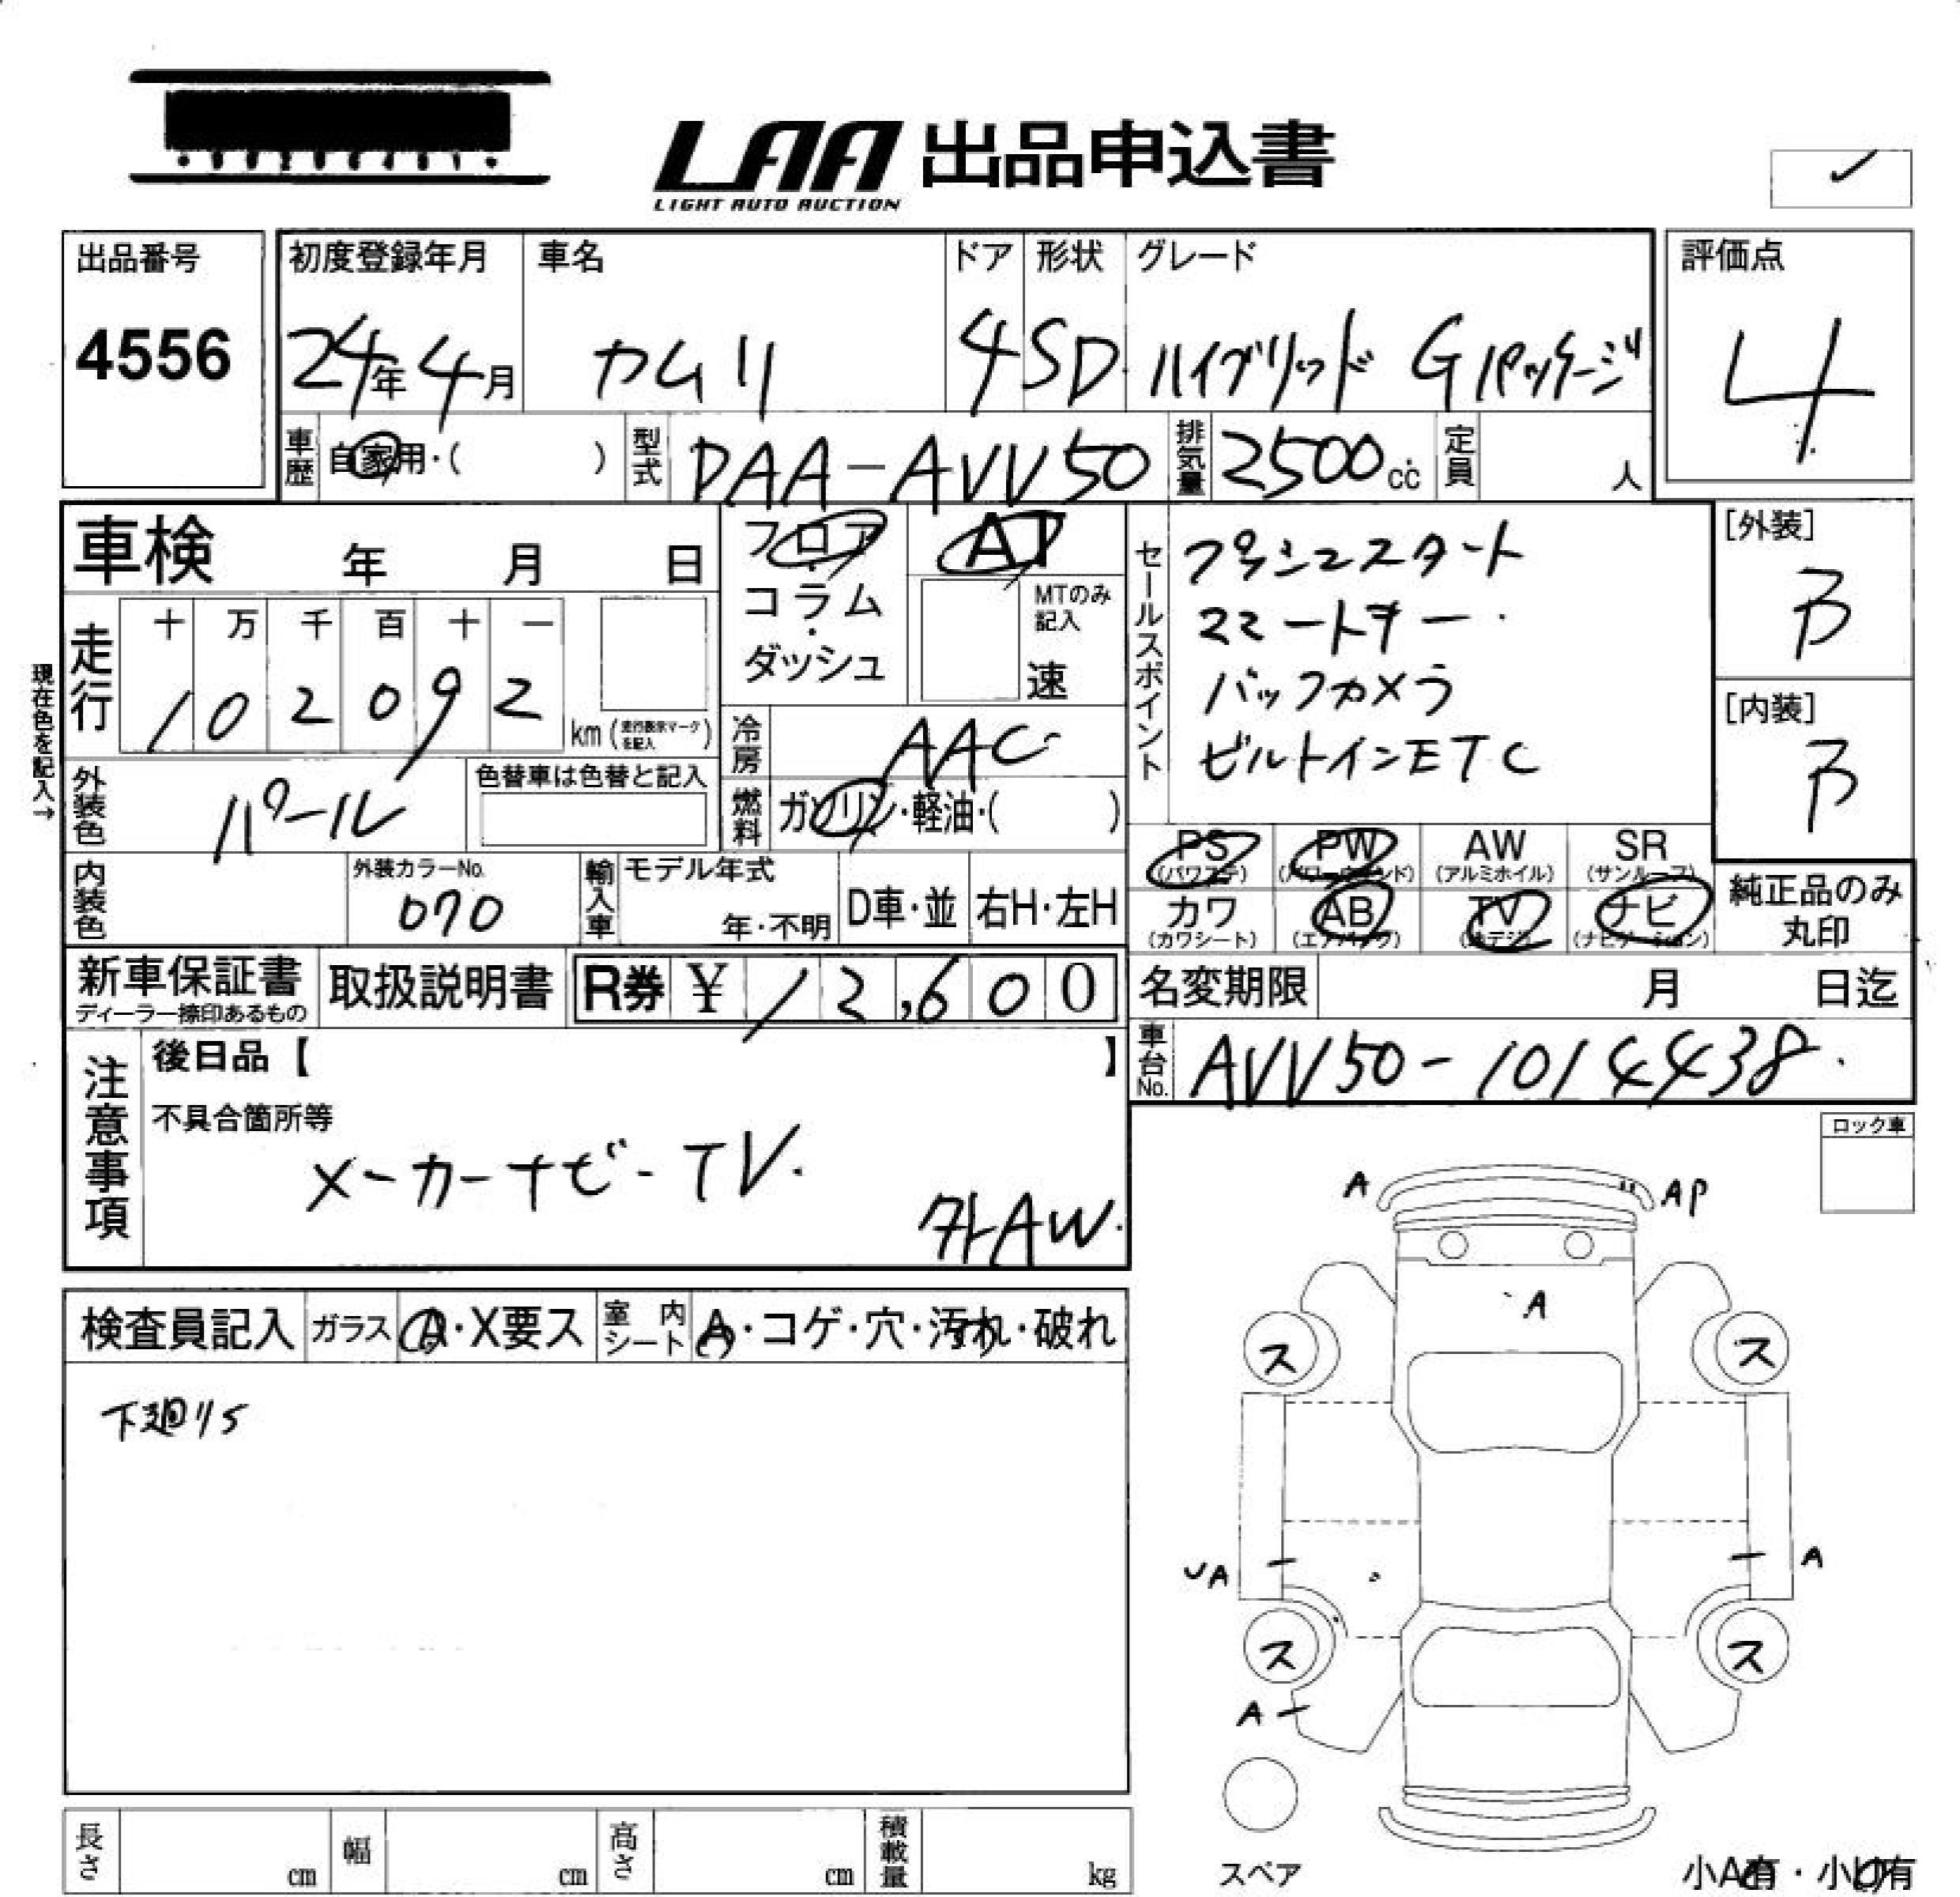 LAA 出品申込書
LIGHT AUTO AUCTION
出品番号
4556
初度登録年月
24年 4月
車名
カムリ
ドア
4
形状
SD
グレード
ハイブリッド Gパッケージ
評価点
4
車歴
自家用・( )
型式
DAA-AVV50
排気量
2500cc
定員
人
車検 年 月 日
フロア
・
コラム
・
ダッシュ
AT
MTのみ
記入
速
セールスポイント
プッシュスタート
スマートキー
バックカメラ
ビルトインETC
[外装]
B
[内装]
B
現在色を記入→
走行
十 万 千 百 十 一
1 0 2 0 9 2
km (走行表示マークを記入)
冷房
AAC
燃料
ガソリン・軽油・( )
外装色
パール
色替車は色替と記入
内装色
外装カラーNo.
070
輸入車
モデル年式
年・不明
D車・並
右H・左H
PS PW AW SR
(パワステ) (パワーウィンド) (アルミホイル) (サンルーフ)
カワ AB TV ナビ
(カワシート) (エアバッグ) (地デジ) (ナビゲーション)
純正品のみ
丸印
新車保証書
ディーラー捺印あるもの
取扱説明書
R券 ¥ 12,600
名変期限 月 日迄
車台No.
AVV50-1014438
注意事項
後日品【 】
不具合箇所等
メーカーナビ-TV.
外AW.
ロック車
検査員記入
ガラス
A・X要ス
室内シート
A・コゲ・穴・汚れ・破れ
下廻りS
A
AP
A
ス
ス
A
A
ス
ス
A
スペア
小A有・小U有
長さ cm
幅 cm
高さ cm
積載量 kg